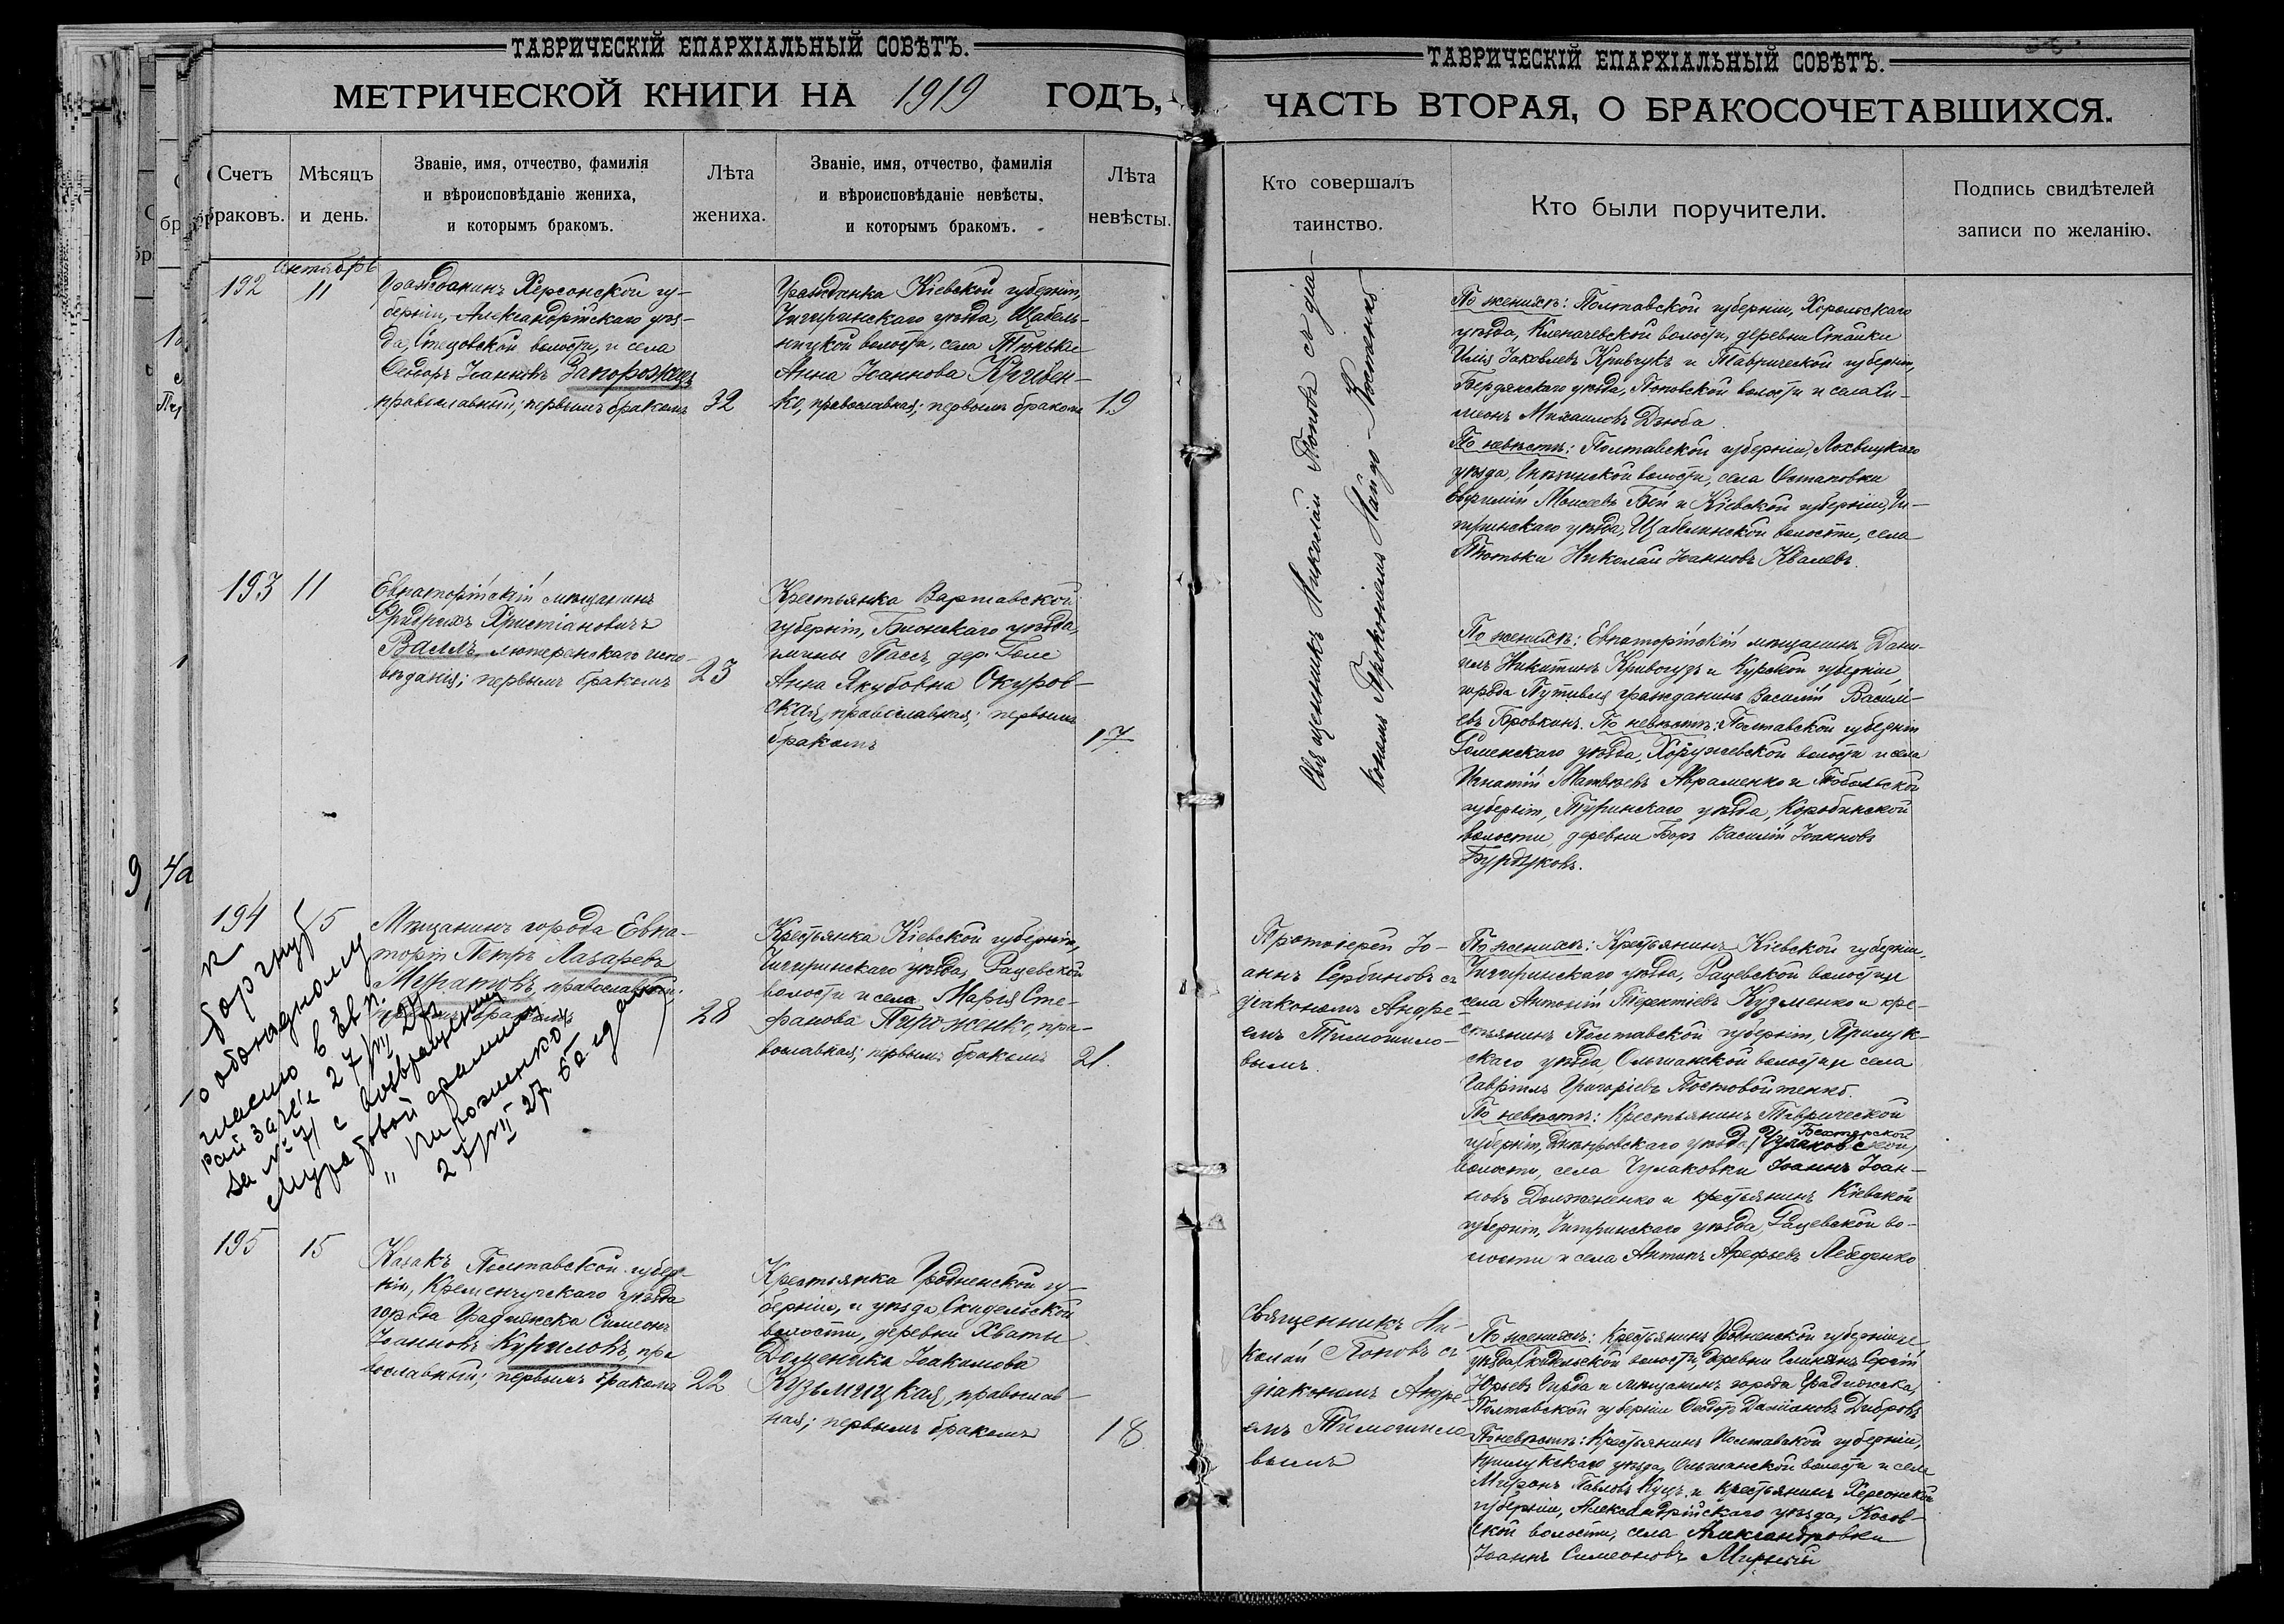 ТАВРИЧЕСКІЙ ЕПАРХІАЛЬНЫЙ СОВѢТЪ.
МЕТРИЧЕСКОЙ КНИГИ НА 1919 ГОДЪ,
Счетъ браковъ.
Мѣсяцъ и день.
Званіе, имя, отчество, фамилія
и вѣроисповѣданіе жениха,
и которымъ бракомъ.
Лѣта жениха.
Званіе, имя, отчество, фамилія
и вѣроисповѣданіе невѣсты,
и которымъ бракомъ.
Лѣта невѣсты.
192
Октябрь
11
Гражданинъ Херсонской гу-
берніи, Александрійскаго уѣз-
да, Стецовской волости, и села
Ѳеодоръ Іоанновъ Запорожецъ
православный; первымъ бракомъ
32
Гражданка Кіевской губерніи,
Чигиринскаго уѣзда, Щабель-
ницкой волости, села Тиньки
Анна Іоаннова Кривен-
ко, православная; первымъ бракомъ
19
193
11
Евпаторійскій мѣщанинъ
Фридрихъ Христіановичъ
Валлъ, лютеранскаго испо-
вѣданія; первымъ бракомъ
23
Крестьянка Варшавской
губерніи, Блонскаго уѣзда,
гмины Пассъ, дер. Голе
Анна Якубовна Окуров-
ская, православная; первымъ
бракомъ
17
194
15
Мѣщанинъ города Евпа-
торіи Петръ Лазаревъ
Муратовъ, православный;
первымъ бракомъ
28
Крестьянка Кіевской губерніи,
Чигиринскаго уѣзда, Рацевской
волости и села Марія Сте-
фанова Пироженко, пра-
вославная; первымъ бракомъ
21.
в Евп.
рай загсе 27/VII 27
за № 71 с возвращением
фамилии
"Пироженко"
27/VII 27.
195
15
Казакъ Полтавской губер-
ніи, Кременчугскаго уѣзда
города Градижска Симеонъ
Іоанновъ Куриловъ, пра
вославный; первымъ бракомъ
22
Крестьянка Гродненской гу-
берніи, и уѣзда Скидельской
волости, деревни Хваты
Доменика Іоакимова
Кузьмицкая, православ-
ная; первымъ бракомъ
18
ТАВРИЧЕСКІЙ ЕПАРХІАЛЬНЫЙ СОВѢТЪ.
ЧАСТЬ ВТОРАЯ, О БРАКОСОЧЕТАВШИХСЯ.
Кто совершалъ
таинство.
Кто были поручители.
Подпись свидѣтелей
записи по желанію.
Священникъ Николай Поповъ съ діа-
кономъ Прокопіемъ Майдо-Костенко.
По женихѣ: Полтавской губерніи, Хорольскаго
уѣзда, Клепачевской волости, деревни Стайки
Илія Іаковлевъ Кривчукъ и Таврической губерніи,
Бердянскаго уѣзда, Поповской волости и села Си-
меонъ Михаиловъ Дзюба.
По невѣстѣ: Полтавской губерніи, Лохвицкаго
уѣзда, волости, села Остаповки
Евфимій Моисеевъ Бей и Кіевской губерніи, Чи-
гиринскаго уѣзда, волости, села
Николай Іоанновъ Квалевъ.
По женихѣ: Евпаторійскій мѣщанинъ Дани-
илъ Никитинъ и Курской губерніи,
города Путивля гражданинъ Василій Василі-
евъ Бровкинъ. По невѣстѣ: Полтавской губерніи
Роменскаго уѣзда, Хоружевской волости и села
Игнатій Матвѣевъ Авраменко и Тобольской
губерніи, Туринскаго уѣзда, Коробинской
волости, деревни Боръ Василій Іоанновъ
Бурдуковъ.
Протоіерей Іо-
аннъ Сербиновъ съ
діакономъ Андре-
емъ Тимошило-
вымъ.
По женихѣ: Крестьянинъ Кіевской губерніи,
Чигиринскаго уѣзда, Рацевской волости и
села Антоній Терентіевъ Кузменко и кре-
стьянинъ Полтавской губерніи, Прилук-
скаго уѣзда, Ольшанской волости и села
Гавріилъ Григоріевъ Постовойтенко.
По невѣстѣ: Крестьянинъ Таврической
губерніи, Днѣпровскаго уѣзда, Бехтерской
волости, села Чулаковки Іоаннъ Іоан-
новъ Долженко и крестьянинъ Кіевской
губерніи, Чигиринскаго уѣзда, Рацевской во-
лости и села Антонъ Арефьевъ Лебеденко
Священникъ Ни-
колай Поповъ съ
діакономъ Андре-
емъ Тимошило
вымъ
По женихѣ: Крестьянинъ Гродненской губерніи и
уѣзда, Скидельской волости, деревни Глиняны Сергій
Юрьевъ и мѣщанинъ города Градижска,
Полтавской губерніи Ѳеодоръ Даміановъ Дибровъ
По невѣстѣ: Крестьянинъ Полтавской губерніи,
Прилукскаго уѣзда, Ольшанской волости и села
Миронъ Павловъ Куцъ и крестьянинъ Херсонской
губерніи, Александрійскаго уѣзда, Косов-
ской волости, села Александровки
Іоаннъ Симеоновъ Мирный